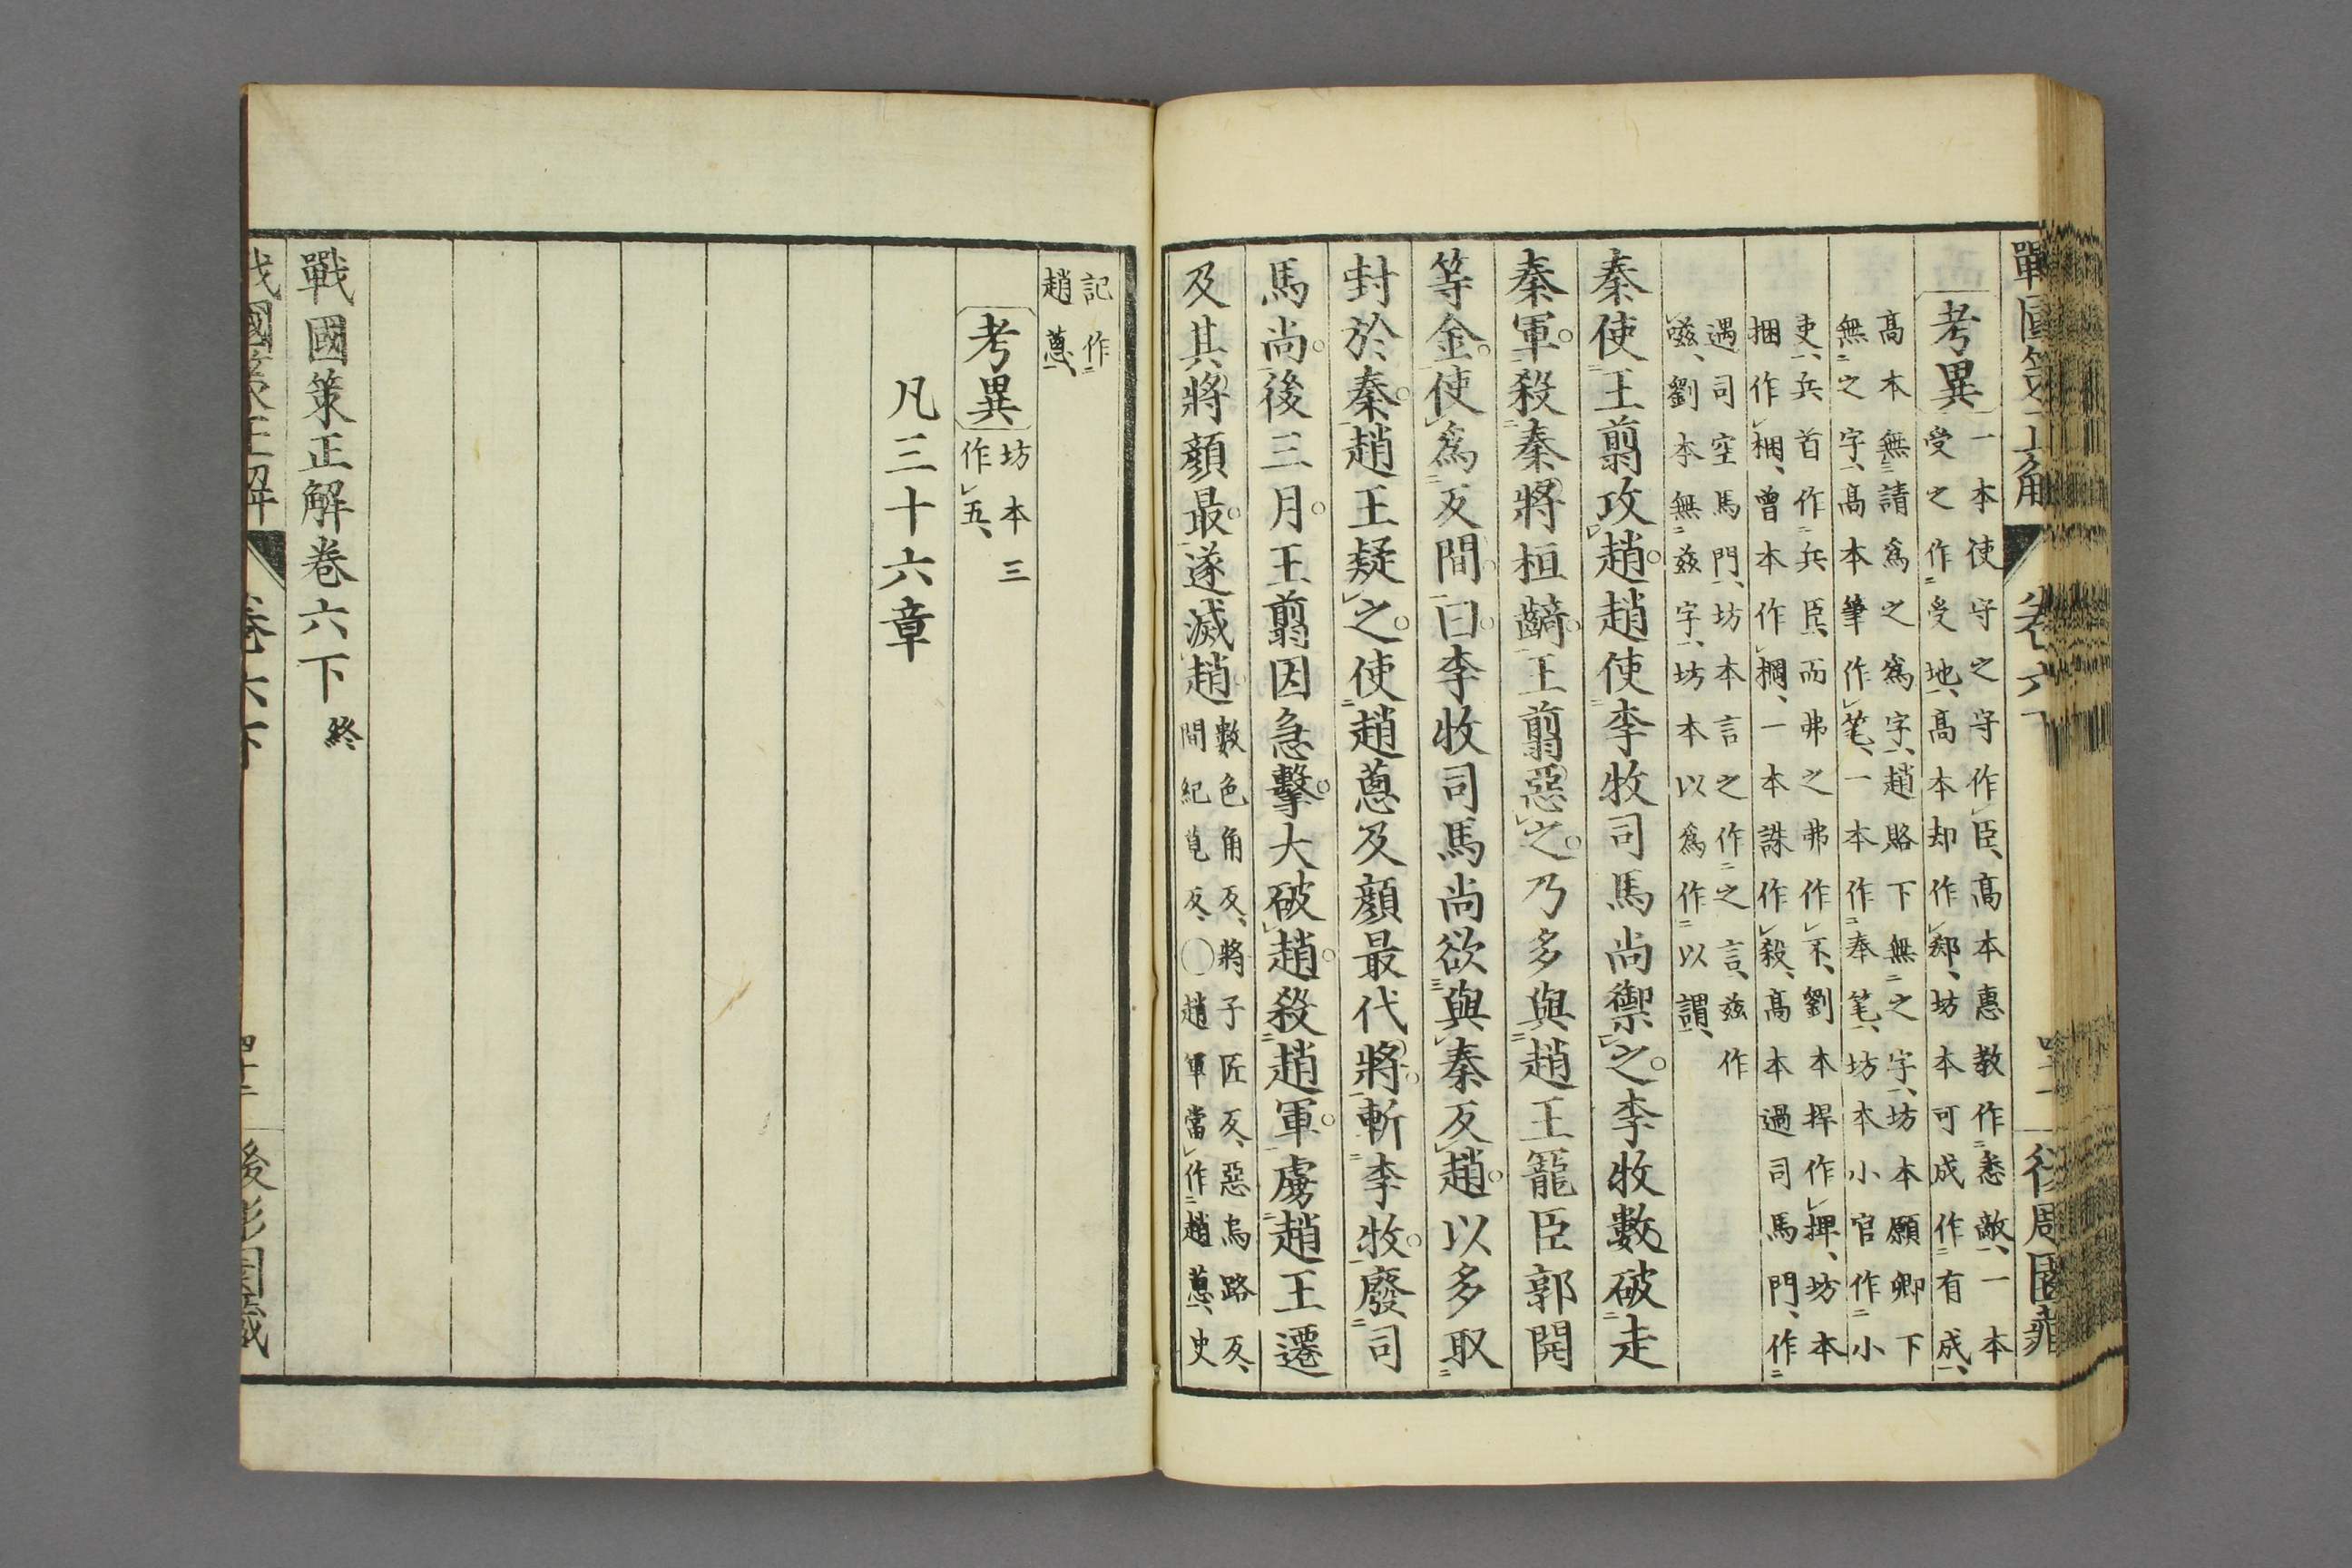 考異
一本使守之守作臣、高本惠教作悉敵、一本
受之作受地、高本却作郄、坊本可成作有成、
高本無請爲之爲字、趙賂下無之字、坊本願卿下
無之字、高本筆作笔、一本作奉笔、坊本小官作小
吏、兵首作兵臣、而弗之弗作不、劉本捍作押、坊本
捆作梱、曾本作欄、一本誅作殺、高本過司馬門、作
遇司空馬門、坊本言之作之言、茲作
嗞、劉本無茲字、坊本以爲作以謂、
秦使王翦攻趙趙使李牧司馬尚禦之李牧數破走
秦軍殺秦將桓齮王翦惡之乃多與趙王寵臣郭開
等金使爲反間曰李牧司馬尚欲與秦反趙以多取
封於秦趙王疑之使趙蔥及顏最代將斬李牧廢司
馬尚後三月王翦因急擊大破趙殺趙軍虜趙王遷
及其將顏最遂滅趙
數色角反、將子匠反、惡烏路反、
間紀莧反、〇趙軍當作趙蔥、史
記作
趙蔥、
考異
坊本三
作五、
凡三十六章
戰國策正解卷六下終